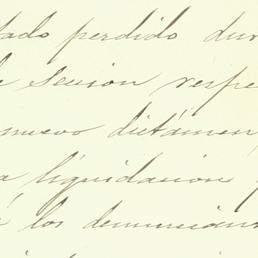 tado perdido dur
le sesion respe
nuevo dictámen
a liquidacion
á los denuncian